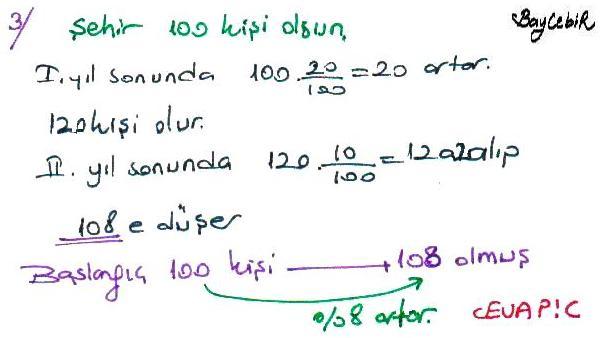 3/ Şehir 100 kişi olsun,
BayCebiR
I. yıl sonunda 100 . 20/100 = 20 artar.
120 kişi olur.
II. yıl sonunda 120 . 10/100 = 12 azalıp
108 e düşer
Başlangıç 100 kişi → 108 olmuş
%8 artar. CEVAP: C